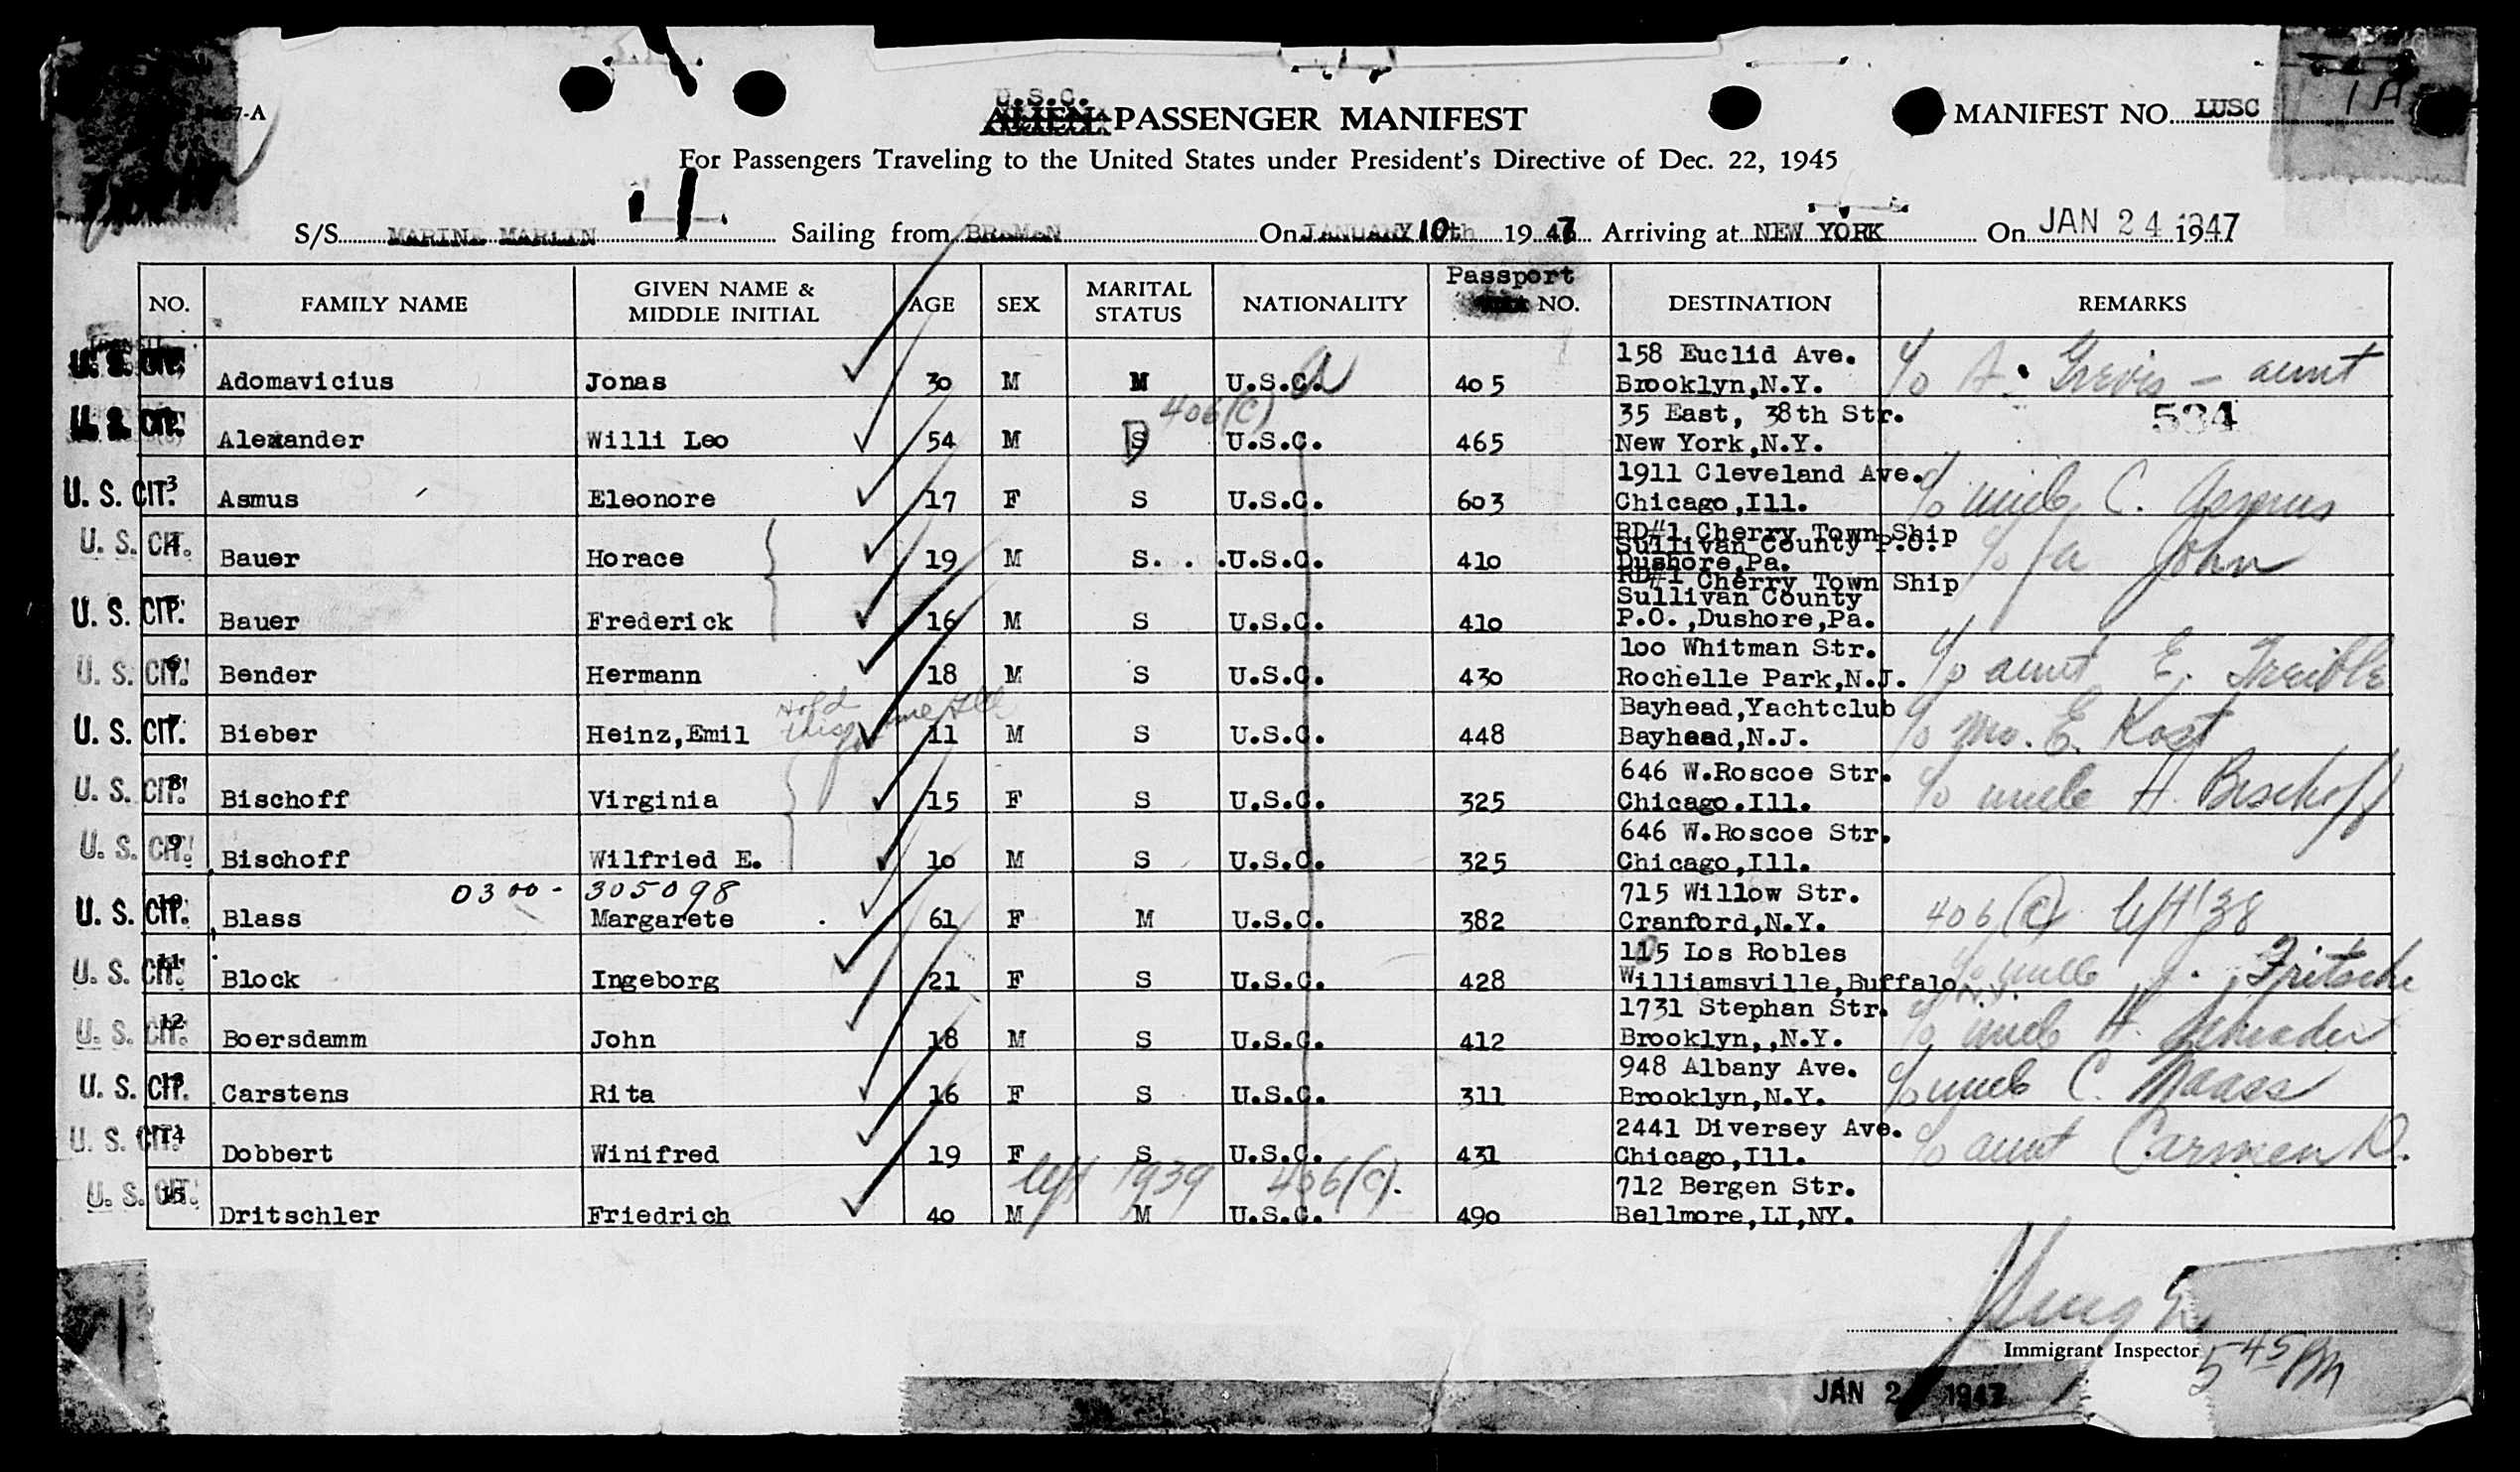 7-A
U.S.C.
ALIEN PASSENGER MANIFEST
MANIFEST NO. LUSC 1A
For Passengers Traveling to the United States under President's Directive of Dec. 22, 1945
S/S MARINE MARLIN Sailing from BREMEN On JANUARY 10th 1947 Arriving at NEW YORK On JAN 24 1947
NO. FAMILY NAME GIVEN NAME & MIDDLE INITIAL AGE SEX MARITAL STATUS NATIONALITY Passport NO. DESTINATION REMARKS
U. S. CIT. Adomavicius Jonas 30 M M U.S.C. 405 158 Euclid Ave. Brooklyn,N.Y. c/o A. Grevis - aunt
534
406(c)
U. S. CIT. Alexander Willi Leo 54 M D S U.S.C. 465 35 East, 38th Str. New York,N.Y.
U. S. CIT. 3 Asmus Eleonore 17 F S U.S.C. 603 1911 Cleveland Ave. Chicago,Ill. c/o uncle C. Asmus
U. S. CIT. 4 Bauer Horace 19 M S. . .U.S.C. 410 RD#1 Cherry Town Ship Sullivan County P.O. Dushore,Pa. c/o fa John
U. S. CIT. 5 Bauer Frederick 16 M S U.S.C. 410 RD#1 Cherry Town Ship Sullivan County P.O.,Dushore,Pa.
U. S. CIT. 6 Bender Hermann 18 M S U.S.C. 430 100 Whitman Str. Rochelle Park,N.J. c/o aunt E. Treible
Hold this
U. S. CIT. 7 Bieber Heinz,Emil 11 M S U.S.C. 448 Bayhead,Yachtclub Bayhead,N.J. c/o Mrs. E. Kost
U. S. CIT. 8 Bischoff Virginia 15 F S U.S.C. 325 646 W.Roscoe Str. Chicago.Ill. c/o uncle H. Bischoff
U. S. CIT. 9 Bischoff Wilfried E. 10 M S U.S.C. 325 646 W.Roscoe Str. Chicago,Ill.
0300 - 305098
U. S. CIT. 10 Blass Margarete 61 F M U.S.C. 382 715 Willow Str. Cranford,N.Y. 406(c) left '38
U. S. CIT. 11 Block Ingeborg 21 F S U.S.C. 428 115 Los Robles Williamsville,Buffalo N.Y. c/o uncle J. Fritsche
U. S. CIT. 12 Boersdamm John 18 M S U.S.C. 412 1731 Stephan Str. Brooklyn,,N.Y. c/o uncle H. Schrader
U. S. CIT. 13 Carstens Rita 16 F S U.S.C. 311 948 Albany Ave. Brooklyn,N.Y. c/o uncle C. Maass
U. S. CIT. 14 Dobbert Winifred 19 F S U.S.C. 431 2441 Diversey Ave. Chicago,Ill. c/o aunt Carmen D.
left 1939 406(c).
U. S. CIT. 15 Dritschler Friedrich 40 M M U.S.C. 490 712 Bergen Str. Bellmore,LI,NY.
Immigrant Inspector
5 45 PM
JAN 2 1947